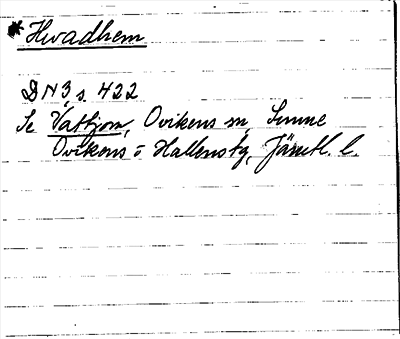 *Hwadhem
DN 3, s. 422
Se Vattjom, Ovikens sn, Sunne
Ovikens o Hallens tg, Jämtl. l.